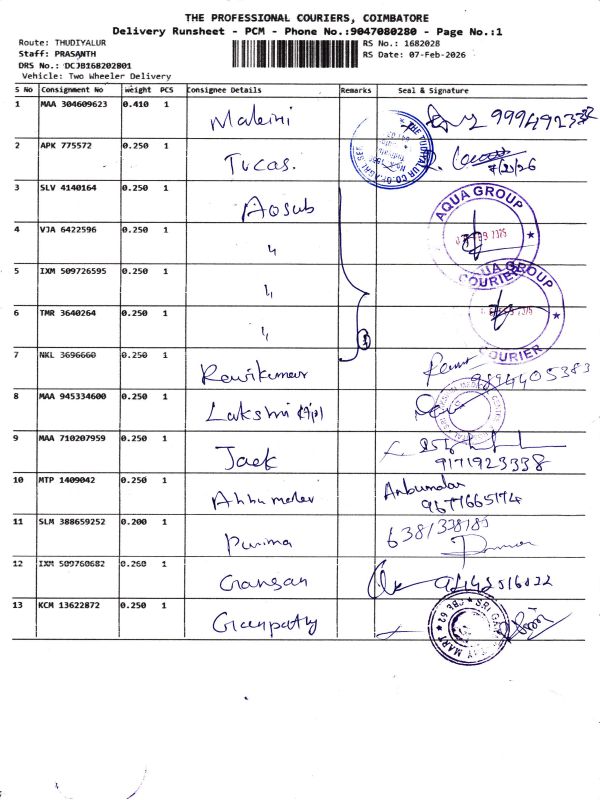 THE PROFESSIONAL COURIERS, COIMBATORE
Delivery Runsheet - PCM - Phone No.:9047080280 - Page No.:1
Route: THUDIYALUR
RS No.: 1682028
Staff: PRASANTH
RS Date: 07-Feb-2026
DRS No.: DCJB168202801
Vehicle: Two Wheeler Delivery
S No Consignment No Weight PCS Consignee Details Remarks Seal & Signature
1 MAA 304609623 0.410 1 Maleini
2 APK 775572 0.250 1 Tucas. 7/2/26
3 SLV 4140164 0.250 1 Aqsub AQUA GROUP
4 VJA 6422596 0.250 1 " COURIER
5 IXM 509726595 0.250 1 " AQUA GROUP
6 TMR 3640264 0.250 1 " COURIER
7 NKL 3696660 0.250 1 Ravikumar 9894405383
8 MAA 945334600 0.250 1 Lakshmi
9 MAA 710207959 0.250 1 Jack 9171923338
10 MTP 1409042 0.250 1 Anbumalar 9677665174
11 SLM 388659252 0.200 1 Purima
12 IXM 509760682 0.260 1 Gansan
13 KCM 13622872 0.250 1 Ganpathy